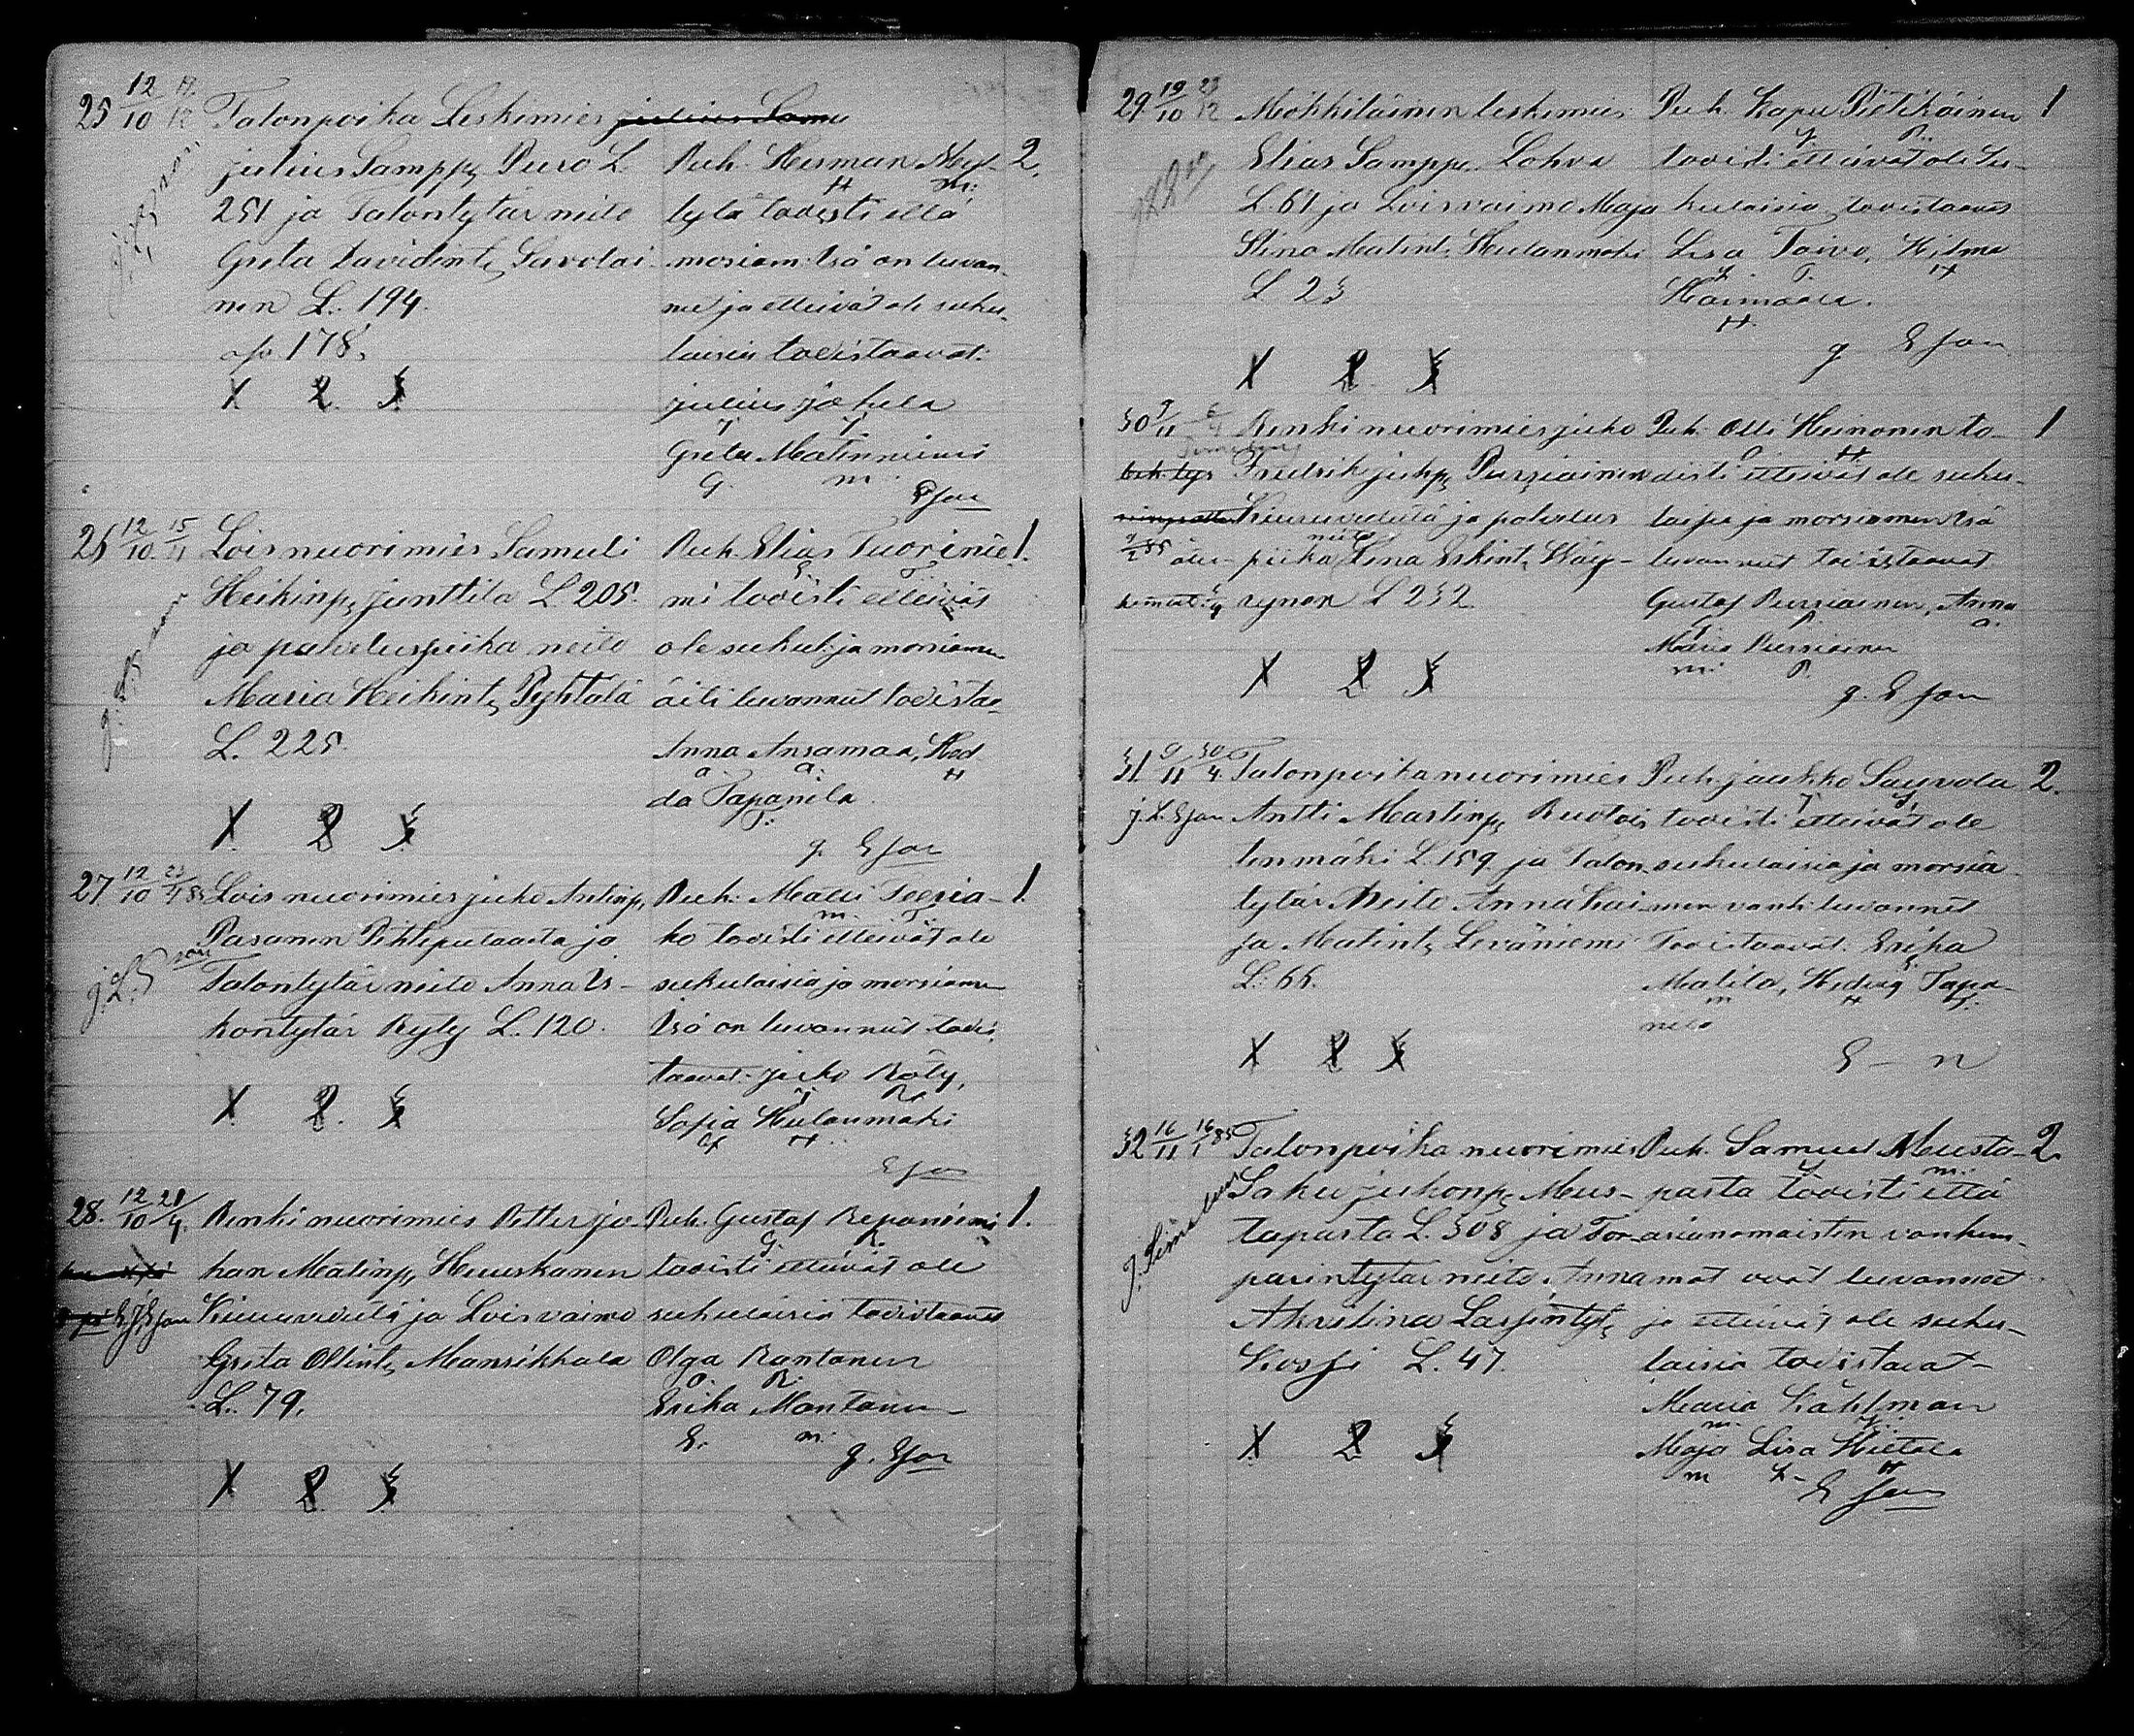 25 12/10 Talonpoika Leskimies
Julius Sampp. Puro L.
251 ja Talontytär neito
Greta Davidint. Savolai-
nen L. 194.
178.
X 2 3
Puh. Herman Myl- 2.
H m.
lylä todisti että
morsiam. Isä on luvan-
nu ja etteivät ole suku-
laisia todistaavat:
Julius Jokela
J J
Greta Matinniemi
G. m.
26 12/10 15/11 Lois nuorimies Samuli
Heikinp. Junttila L. 205.
ja palveluspiika neito
Maria Heikint. Pyhtälä
L. 225.
X 2 3
Puh. Elias Tuorinie- 1.
E T
mi todisti etteivät
ole sukul. ja morsiamen
äiti luvannut todistaa
Anna Ansamaa, Hed
a. a. H
da Tapanila.
T.
27 12/10 23/4 85 Lois nuorimies Juho Antinp.
Pasanen Pihtiputaalta ja
Talontytär neito Anna Is-
kontytär Ryty L. 120.
X 2. 3
Puh. Matti Teeria- 1.
m. T.
ho todisti etteivät ole
sukulaisia ja morsiamen
Isä on luvannut todis-
taavat. Juho Röly,
J R
Sofia Hulanmäki
H
28. 12/10 21/4. Renki nuorimies Petter Jo-
han Matinp. Huuskanen
Kiuruvedeltä ja Lois vaimo
Greta Ollint. Mansikkala
L. 79.
X 2 3
Puh. Gustaf Repaniemi 1.
G. R.
todisti etteivät ole
sukulaisia todistaavat
Olga Rantanen
O. R.
Erika Mantanen
E. m.
29 19/10 23/12 Mökkiläinen leskimies
Elias Sampp. Lohva
L. 61 ja Lois vaimo Maja
Stina Matint. Hulanmäki
L. 23
X 2. 3
Puh. Kapu Pietikäinen 1
P.
todisti etteivät ole su-
kulaisia todistaavat
Lisa Toivo, Hilma
L T. H
Harmaala.
H.
30 9/11 Renki nuorimies Juho
Fredrik Juhp. Pursiainen
Kiuruvedeltä ja palvelus
neito
piika Lena Eskint. Häy-
rynen L 232
X 2 3
Puh. Olli Heinonen to- 1
O H
disti etteivät ole suku-
laisia ja morsiamen Isä
luvannut todistaavat
Gustaf Pursiainen, Anna
P. a.
Maria Pursiainen
m. P.
31 9/11 30/4. Talonpoika nuorimies
Antti Martinp. Ruotois
tenmäki L. 159. ja Talon-
tytär Neito Anna Kai
sa Matint. Leväniemi
L. 66.
X 2 3
Puh. Jaakko Saijrola 2.
J S
todisti etteivät ole
sukulaisia ja morsia
men vanh. luvannet
Todistaavat: Erika
E
Matila, Hedvig Tapa-
m H T.
nila
E – n
32 16/11 16/1 85 Talonpoika nuorimies
Saku Juhonp. Mus-
taparta L. 308 ja Tor-
parintytär neito Anna
Akviliina Lassintyt.
Koski L. 47.
X 2 3
Puh. Samuel Musta- 2.
S m.
parta todisti että
asianomaisten vanhem-
mat ovat luvannet
ja etteivät ole suku-
laisia todistavat –
Maria Kahlman
m. K.
Maja Lisa Hietala
m L H